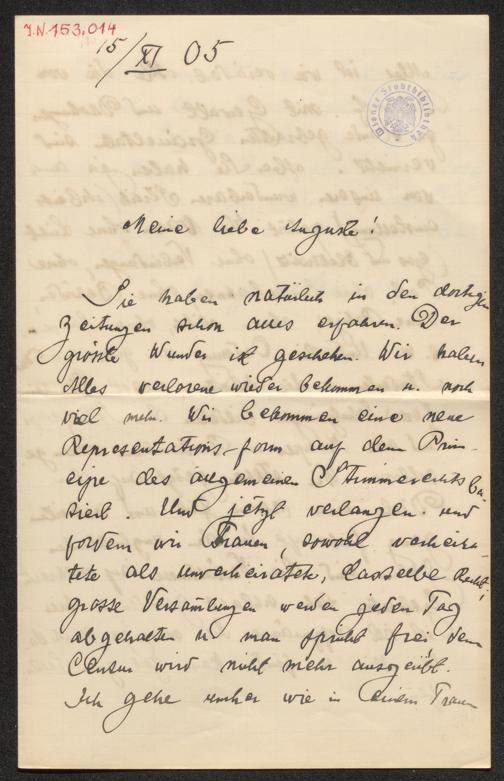 J.N. 153.014
15/XI 05
Wiener Stadtbibliothek
Meine liebe Auguste!
Sie haben natürlich in den dortigen
Zeitungen schon alles erfahren. Der
grösste Wunder ist geschehen. Wir haben
Alles verlorene wieder bekommen u. noch
viel mehr. Wir bekommen eine neue
Representations-form auf dem Prin-
cipe des allgemeinen Stimmerechts ba-
siert. Und jetzt verlangen und
fordern wir Frauen, sowohl verheira-
tete als unverheiratete, dasselbe Recht;
grosse Versamlungen werden jeden Tag
abgehalten u man spricht frei, denn
Censur wird nicht mehr ausgeübt.
Ich gehe umher wie in einem Traum